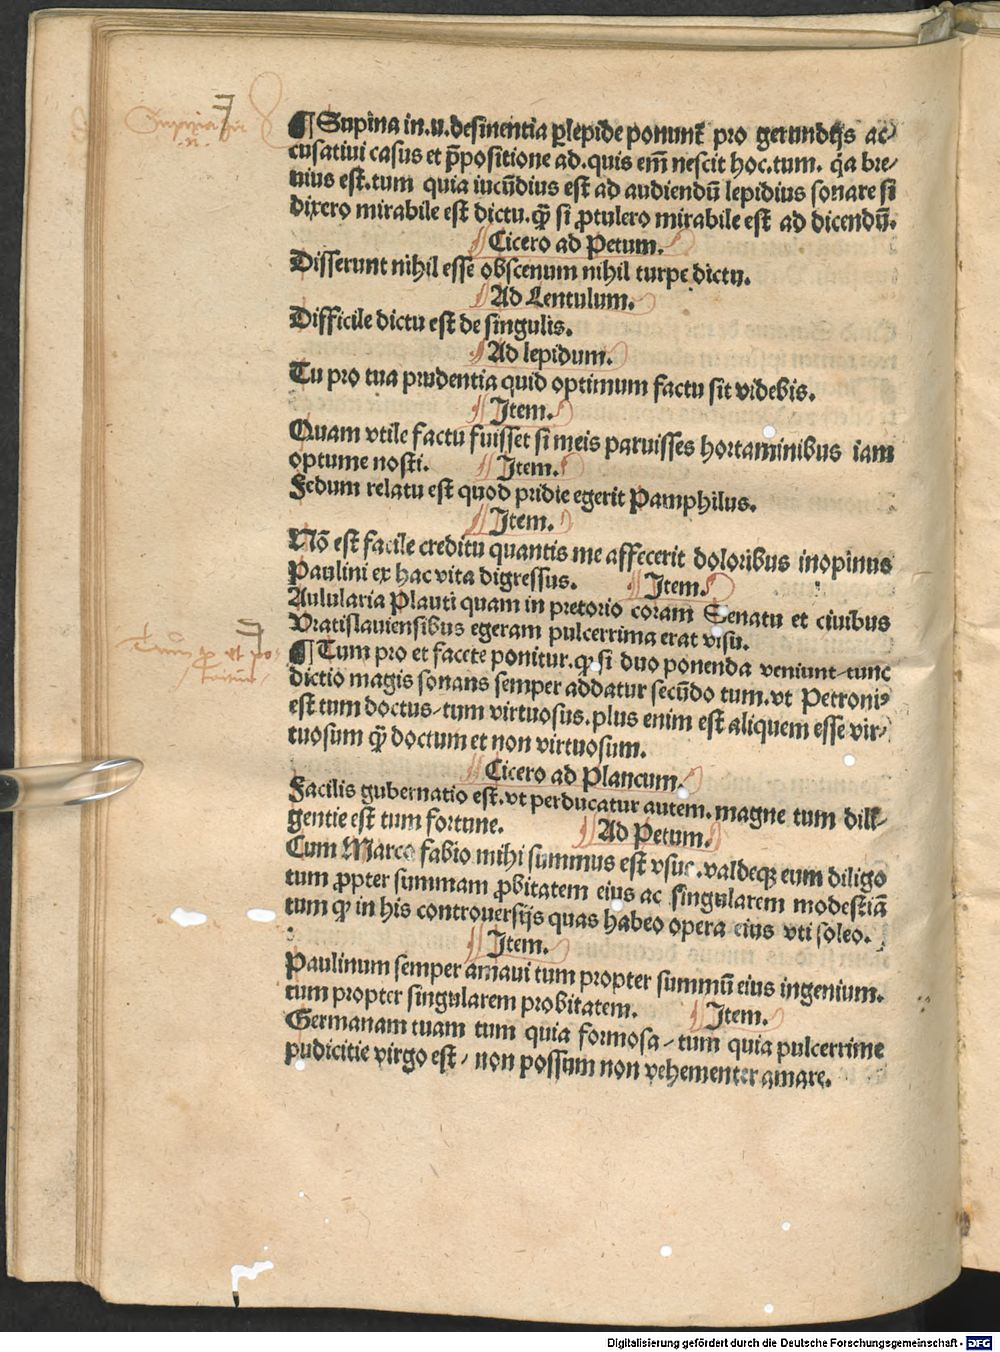 Supina in
.u.
¶ Supina in.u.desinentia ꝑlepide ponunt᷑ pro gerundijs ac⸗
cusatiui casus et p̄positione ad.quis em̄ nescit hoc.tum. q̇a bre⸗
uius est.tum quia iucūdius est ad audiendū lepidius sonare si
dixero mirabile est dictu.qm̄ si ꝓtulero mirabile est ad dicendū.
¶ Cicero ad Petum.
Disserunt nihil esse obscenum nihil turpe dictu.
¶ Ad Lentulum.
Difficile dictu est de singulis.
¶ Ad lepidum.
Tu pro tua prudentia quid optimum factu sit videbis.
¶ Item.
Quam vtile factu fuisset si meis paruisses hortaminibus iam
optume nosti. ¶ Item.
Fedum relatu est quod pridie egerit Pamphilus.
¶ Item.
Nō est facile creditu quantis me affecerit doloribus inopinus
Paulini ex hac vita digressus. ¶ Item.
Aulularia Plauti quam in pretorio coram Senatu et ciuibus
Vratislauiensibus egeram pulcerrima erat visu.
Tum pro et po⸗
nitur
¶ Tum pro et facete ponitur.ꝙ si duo ponenda veniunt tunc
dictio magis sonans semper addatur secūdo tum.vt Petroniꝰ
est tum doctus/tum virtuosus.plus enim est aliquem esse vir⸗
tuosum qm̄ doctum et non virtuosum.
¶ Cicero ad Plancum.
Facilis gubernatio est.vt perducatur autem.magne tum dili⸗
gentie est tum fortune. ¶ Ad Petum.
Cum Marco fabio mihi summus est vsus.valdeqꝫ eum diligo
tum ꝓpter summam ꝓbitatem eius ac singularem modestiā
tum ꝙ in his controuersijs quas habeo opera eius vti soleo.
¶ Item.
Paulinum semper amaui tum propter summū eius ingenium.
tum propter singularem probitatem. ¶ Item.
Germanam tuam tum quia formosa/tum quia pulcerrime
pudicitie virgo est/non possum non vehementer amare.
Digitalisierung gefördert durch die Deutsche Forschungsgemeinschaft - DFG